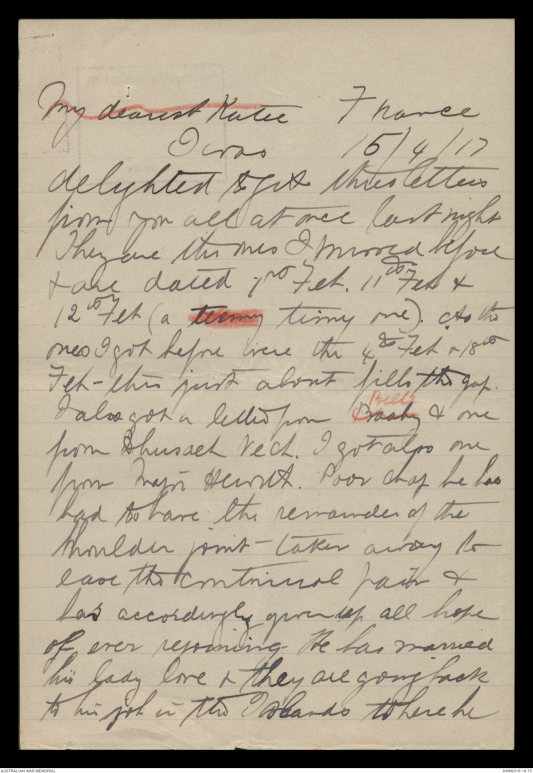 My dearest Katie France
I was 15/4/17
delighted to get three letters
from you all at once last night
They are the ones I missed before
& are dated 7th Feb. 11th Feb &
12th Feb (a teeny tiny one). As the
ones I got before were the 4th Feb & 18th
Feb - this just about fills the gap.
I also got a letter from Belle & one
from Bhusaeh Vech. I got also one
from Major Hewitt. Poor chap he has
had to have the remainder of the
shoulder joint - taken away to
ease the continual pain &
has accordingly given up all hope
of ever rejoining. He has married
his lady love & they are going back
to his job in the Islands where he
AUSTRALIAN WAR MEMORIAL